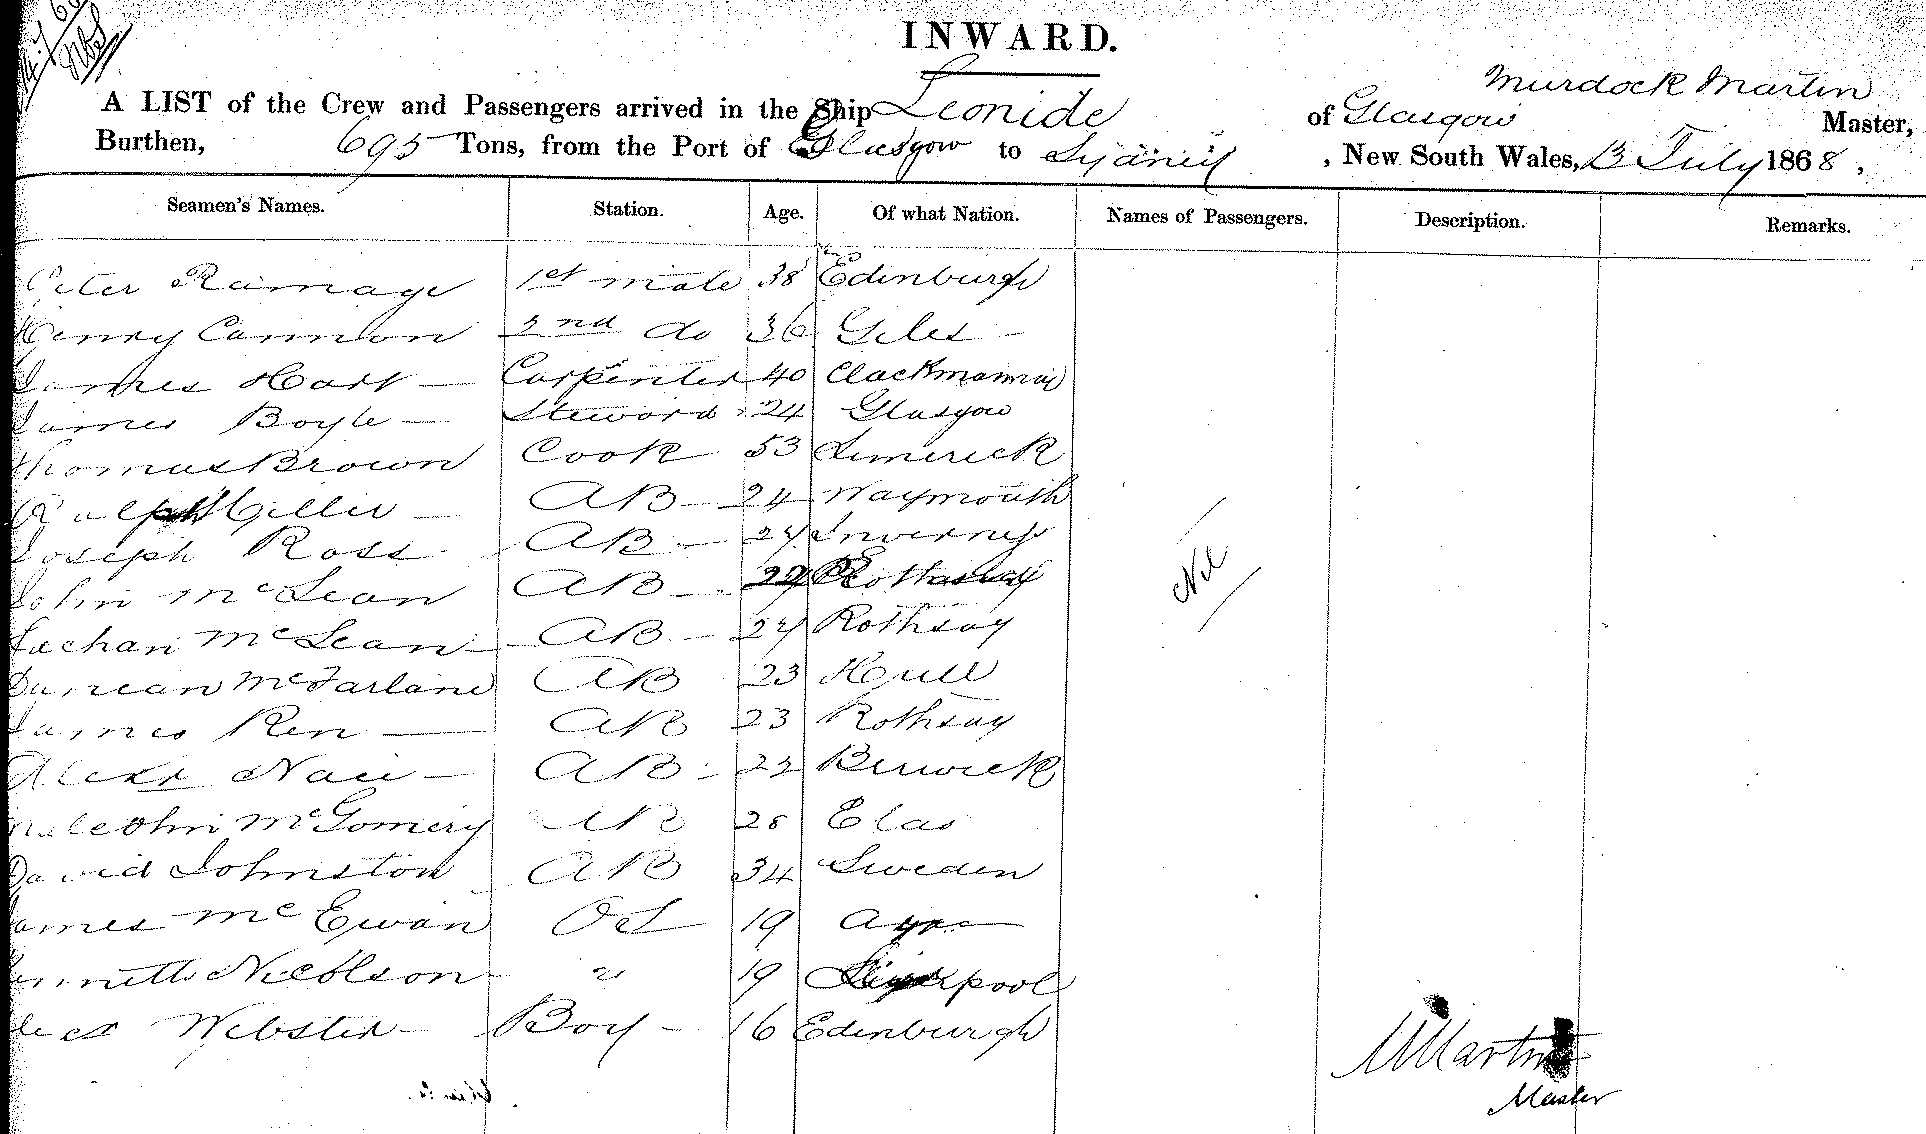 INWARD.
Murdock Martin
A LIST of the Crew and Passengers arrived in the Ship Leonide of Glasgow Master,
Burthen, 695 Tons, from the Port of Glasgow to Sydney , New South Wales, 13 July 1868 ,
Seamen's Names. Station. Age. Of what Nation. Names of Passengers. Description. Remarks.
Peter Ramage 1st mate 38 Edinburgh
Henry Cannon 2nd do 36
James Hart Carpenter 40 Clackmannan
James Boyle Steward 24 Glasgow
Thomas Brown Cook 53 Limerick
Ralph AB 24 Waymouth
Joseph Ross AB 27 Inverness
John McLean AB 27 Rothsay
Lachan McLean AB 27 Rothsay
Nil
Duncan McFarlane AB 23 Hull
James Ren AB 23 Rothsay
Alexr AB 22 Berwick
McGomery AB 28
David Johnston AB 34 Sweden
James McEwan OS 19 Ayre
Nicolson " 19 Liverpool
Alex Webster Boy 16 Edinburgh
M Martin
Master